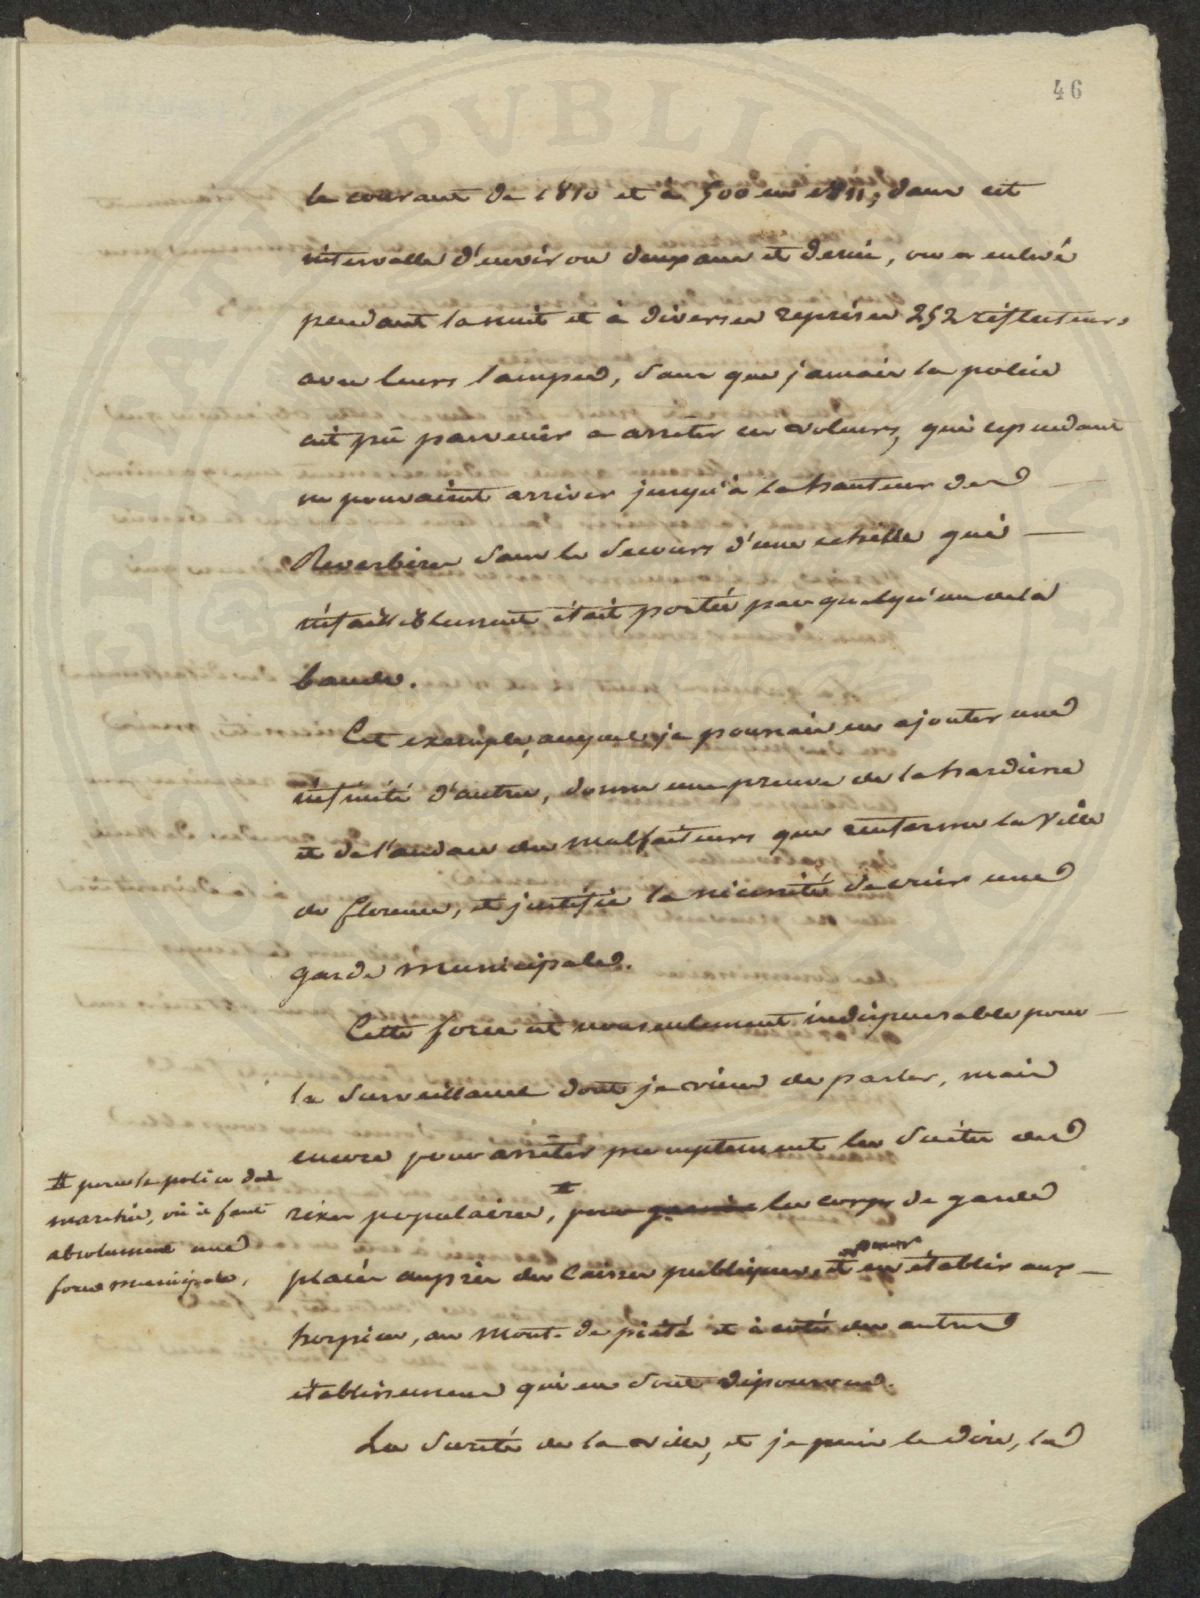 46
le courant de 1810 et à 500 en 1811; dans cet
intervalle d'environ deux ans et demi, on a enlevé
pendant la nuit et à diverses reprises 252 réflecteurs
avec leurs lampes, sans que jamais la police
ait pû parvenir a arreter ces voleurs, qui cependant
ne pouvaient arriver jusqu'à la hauteur des
Reverbères sans le secours d'une echelle qui
infailliblement était portée par quelqu'un de la
bande.
Cet exemple, auquel je pourrais en ajouter une
infinité d'autres, donne une preuve de la hardiesse
et de l'audace des malfaiteurs que renferme la Ville
de florence, et justifie la nécessité de créer une
garde municipale.
Cette force est nonseulement indispensable pour
la surveillance dont je viens de parler, mais
encore pour arrêter promptement les suites des
rixes populaires, # pour garnir les corps de garde
# pour la police des
marchés, où il faut
absolument une
force municipale,
placés auprès des Caisses publiques, et pour en établir aux
hospices, au Mont-de piété et à coté des autres
établissemens qui en sont dépourvus.
La Sureté de la ville, et je puis le dire, la
PUBLIC